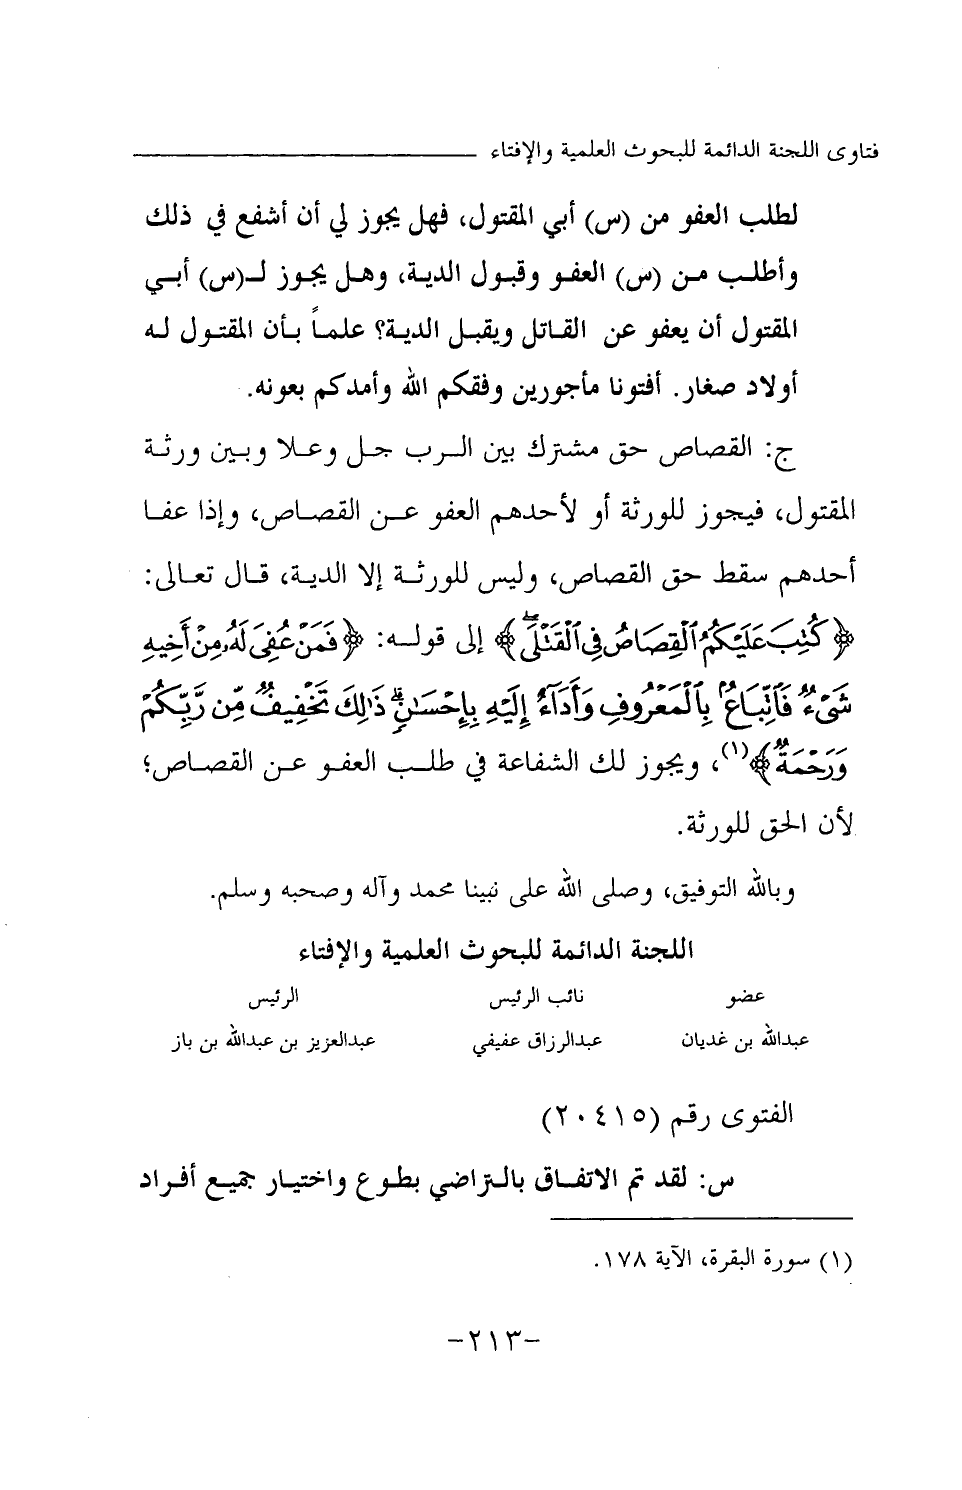 فتاوى اللجنة الدائمة للبحوث العلمية والإفتاء
لطلب العفو من (س) أبي المقتول، فهل يجوز لي أن أشفع في ذلك
وأطلب من (س) العفو وقبول الدية، وهل يجوز لـ(س) أبي
المقتول أن يعفو عن القاتل ويقبل الدية؟ علماً بأن المقتول له
أولاد صغار. أفتونا مأجورين وفقكم الله وأمدكم بعونه.
ج: القصاص حق مشترك بين الرب جل وعلا وبين ورثة
المقتول، فيجوز للورثة أو لأحدهم العفو عن القصاص، وإذا عفا
أحدهم سقط حق القصاص، وليس للورثة إلا الدية، قال تعالى:
﴿كُتِبَ عَلَيْكُمُ ٱلْقِصَاصُ فِي ٱلْقَتْلَىۖ﴾ إلى قوله: ﴿فَمَنْ عُفِيَ لَهُۥ مِنْ أَخِيهِ
شَيْءٌ فَٱتِّبَاعٌۢ بِٱلْمَعْرُوفِ وَأَدَآءٌ إِلَيْهِ بِإِحْسَٰنٍۗ ذَٰلِكَ تَخْفِيفٌ مِّن رَّبِّكُمْ
وَرَحْمَةٌ﴾(١)، ويجوز لك الشفاعة في طلب العفو عن القصاص؛
لأن الحق للورثة.
وبالله التوفيق، وصلى الله على نبينا محمد وآله وصحبه وسلم.
اللجنة الدائمة للبحوث العلمية والإفتاء
عضو نائب الرئيس الرئيس
عبدالله بن غديان عبدالرزاق عفيفي عبدالعزيز بن عبدالله بن باز
الفتوى رقم (٢٠٤١٥)
س: لقد تم الاتفاق بالتراضي بطوع واختيار جميع أفراد
(١) سورة البقرة، الآية ١٧٨.
-٢١٣-